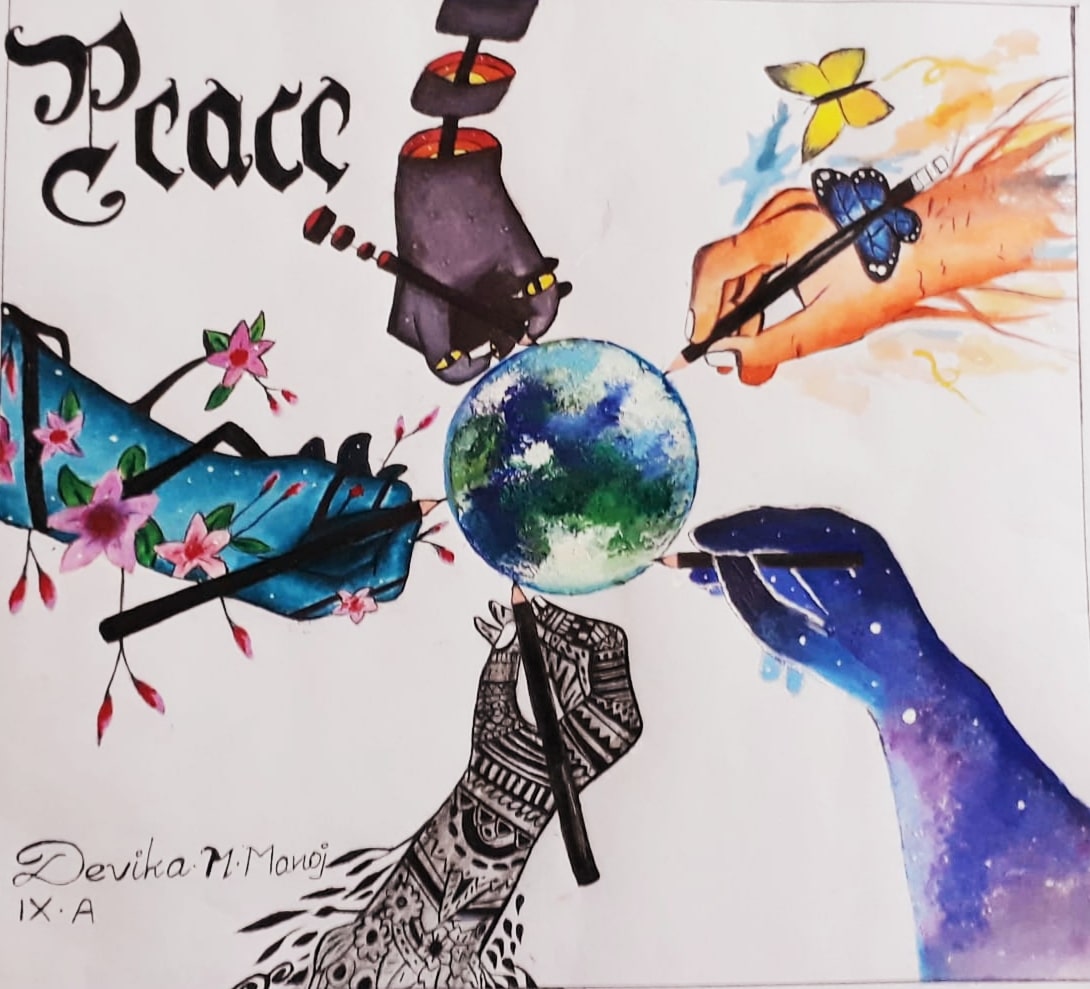 Peace
Devika.M.Manoj
IX.A